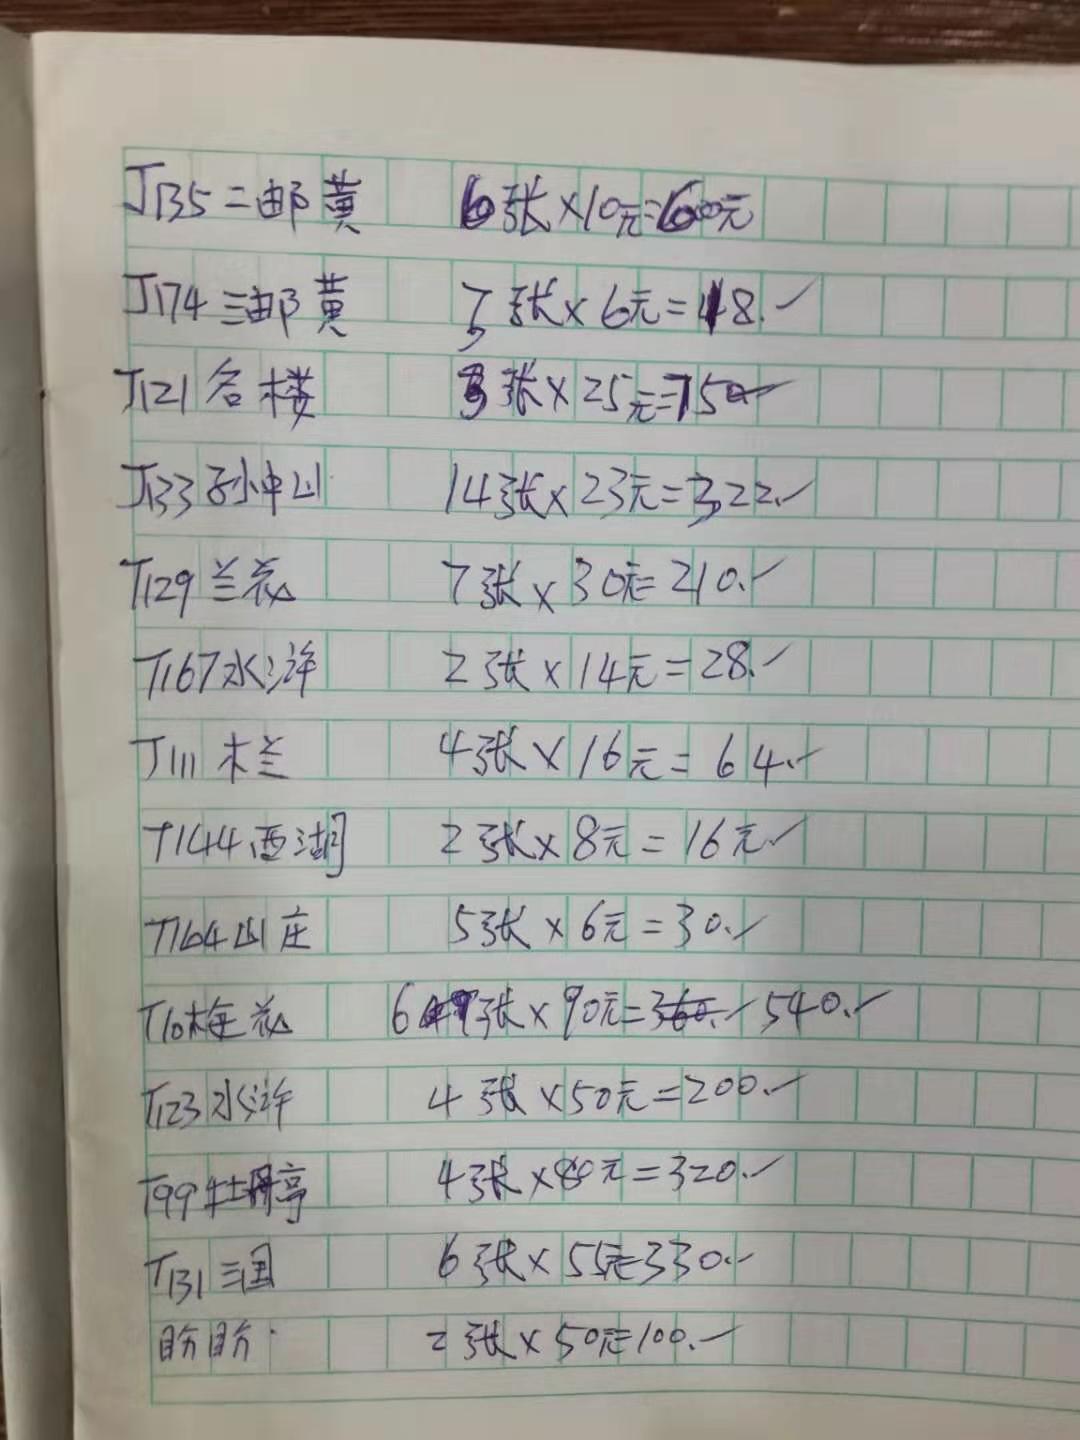 J135二邮黄 6张×10元=60元
J174三邮黄 3张×6元=18.
T121名楼 3张×25元=75
J133孙中山 14张×23元=322.
T129兰花 7张×30元=210.
T167水浒 2张×14元=28.
J111木兰 4张×16元=64.
T144西湖 2张×8元=16元
T164山庄 5张×6元=30.
T10梅花 6张×90元=360. 540.
T123水浒 4张×50元=200.
T99牡丹亭 4张×80元=320.
T131三国 6张×55元=330.
盼盼 2张×50元=100.